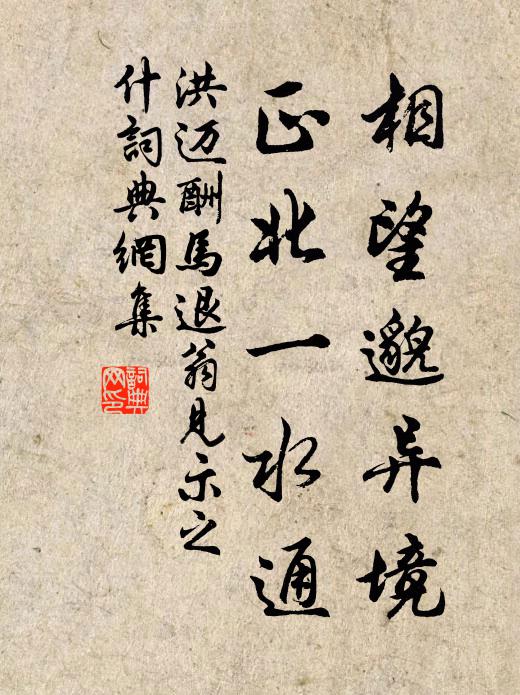 相望邈异境
正北一水通
洪迈酬馬退翁見示之
什詞典網集
詞典
网印